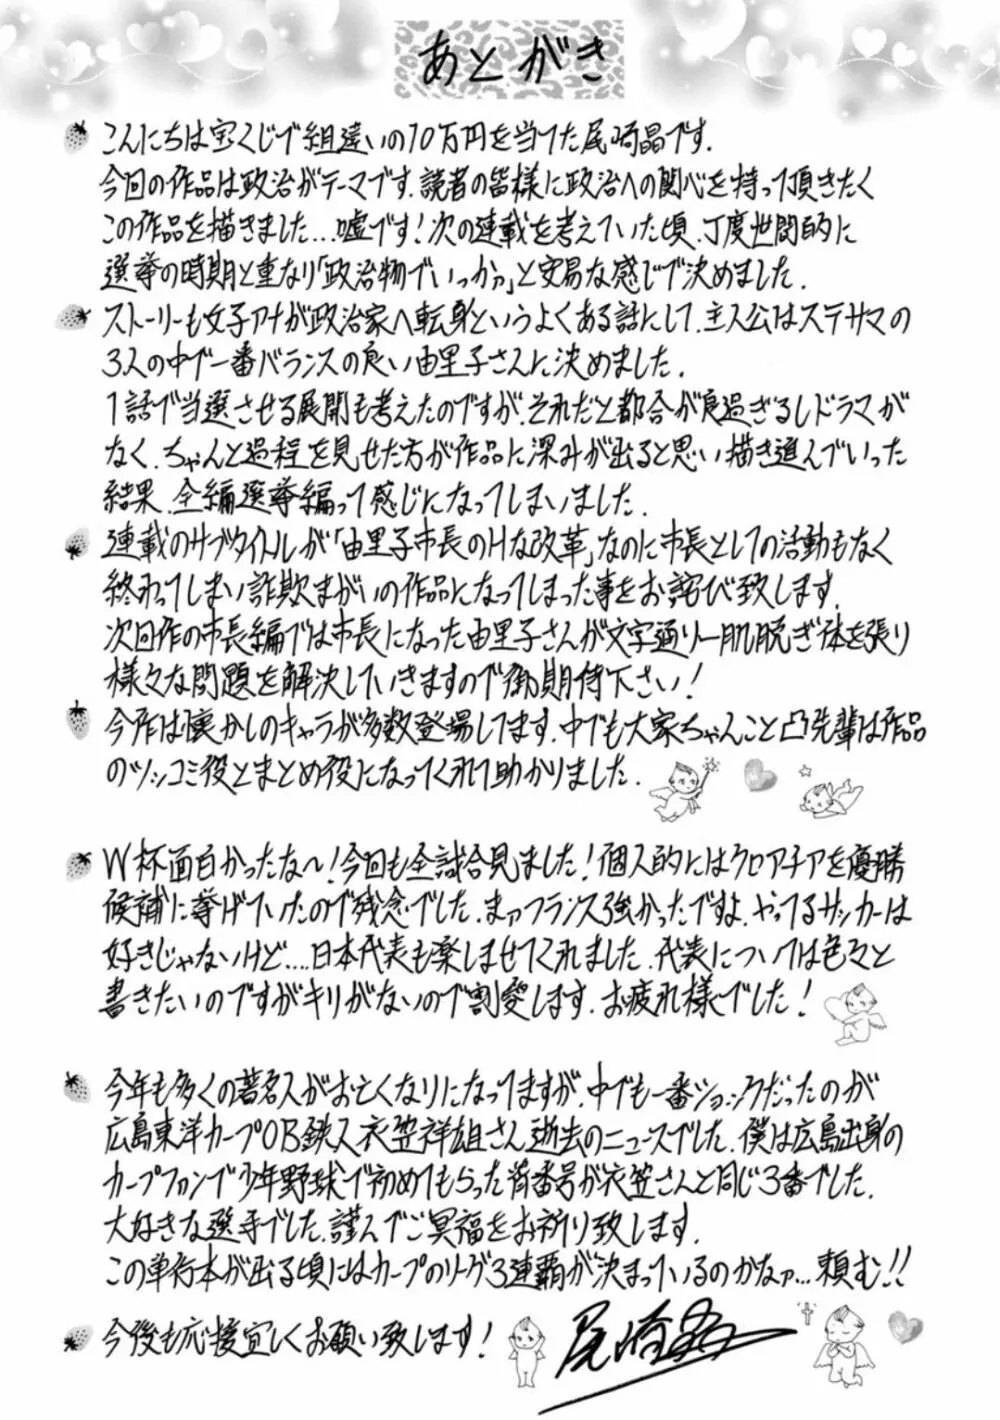 あとがき
こんにちは宝くじで組違いの10万円を当てた尾崎晶です.
今回の作品は政治がテーマです.読者の皆様に政治への関心を持って頂きたく
この作品を描きました...嘘です!次の連載を考えていた頃、丁度世間的に
選挙の時期と重なり「政治物でいっかァ」と安易な感じで決めました.
ストーリーも女子アナが政治家へ転身というよくある話にして、主人公はステサマの
3人の中で一番バランスの良い由里子さんに決めました.
1話で当選させる展開も考えたのですが、それだと都合が良過ぎるしドラマが
なく、ちゃんと過程を見せた方が作品に深みが出ると思い描き進んでいった
結果、全編選挙編って感じになってしまいました.
連載のサブタイトルが「由里子市長のHな改革」なのに市長としての活動もなく
終わってしまい詐欺まがいの作品になってしまった事をお詫び致します.
次回作の市長編では市長になった由里子さんが文字通り一肌脱ぎ体を張り
様々な問題を解決していきますので御期待下さい!
今作は懐かしのキャラが多数登場してます.中でも大家ちゃんこと凸先輩は作品
のツッコミ役とまとめ役になってくれて助かりました.
W杯面白かったな〜!今回も全試合見ました!個人的にはクロアチアを優勝
候補に挙げていたので残念でした.まァフランス強かったですよ.やってるサッカーは
好きじゃないけど....日本代表も楽しませてくれました.代表については色々と
書きたいのですがキリがないので割愛します.お疲れ様でした!
今年も多くの著名人がお亡くなりになってますが、中でも一番ショックだったのが
広島東洋カープOB鉄人衣笠祥雄さん逝去のニュースでした.僕は広島出身の
カープファンで少年野球で初めてもらった背番号が衣笠さんと同じ3番でした.
大好きな選手でした.謹んでご冥福をお祈り致します.
この単行本が出る頃にはカープのリーグ3連覇が決まっているのかなァ...頼む!!
今後も応援宜しくお願い致します!
尾崎晶